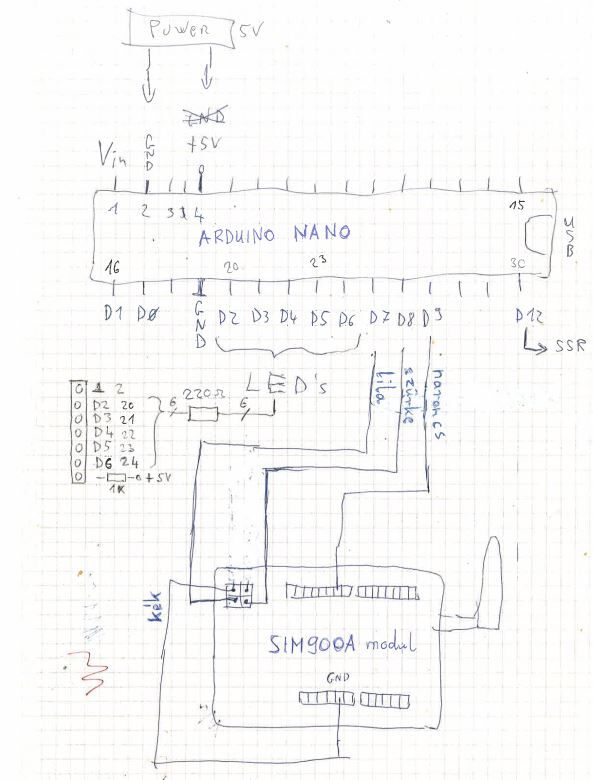 Power 5V
GND
GND
+5V
Vin
1 2 3 4 15
ARDUINO NANO
USB
16 20 23 30
D1 D0 GND D2 D3 D4 D5 D6 D7 D8 D9 D12
SSR
LED's
lila
szürke
narancs
1 2
D2 20
D3 21
D4 22
D5 23
D6 24
1K +5V
6 220Ω 6
kék
SIM900A modul
GND